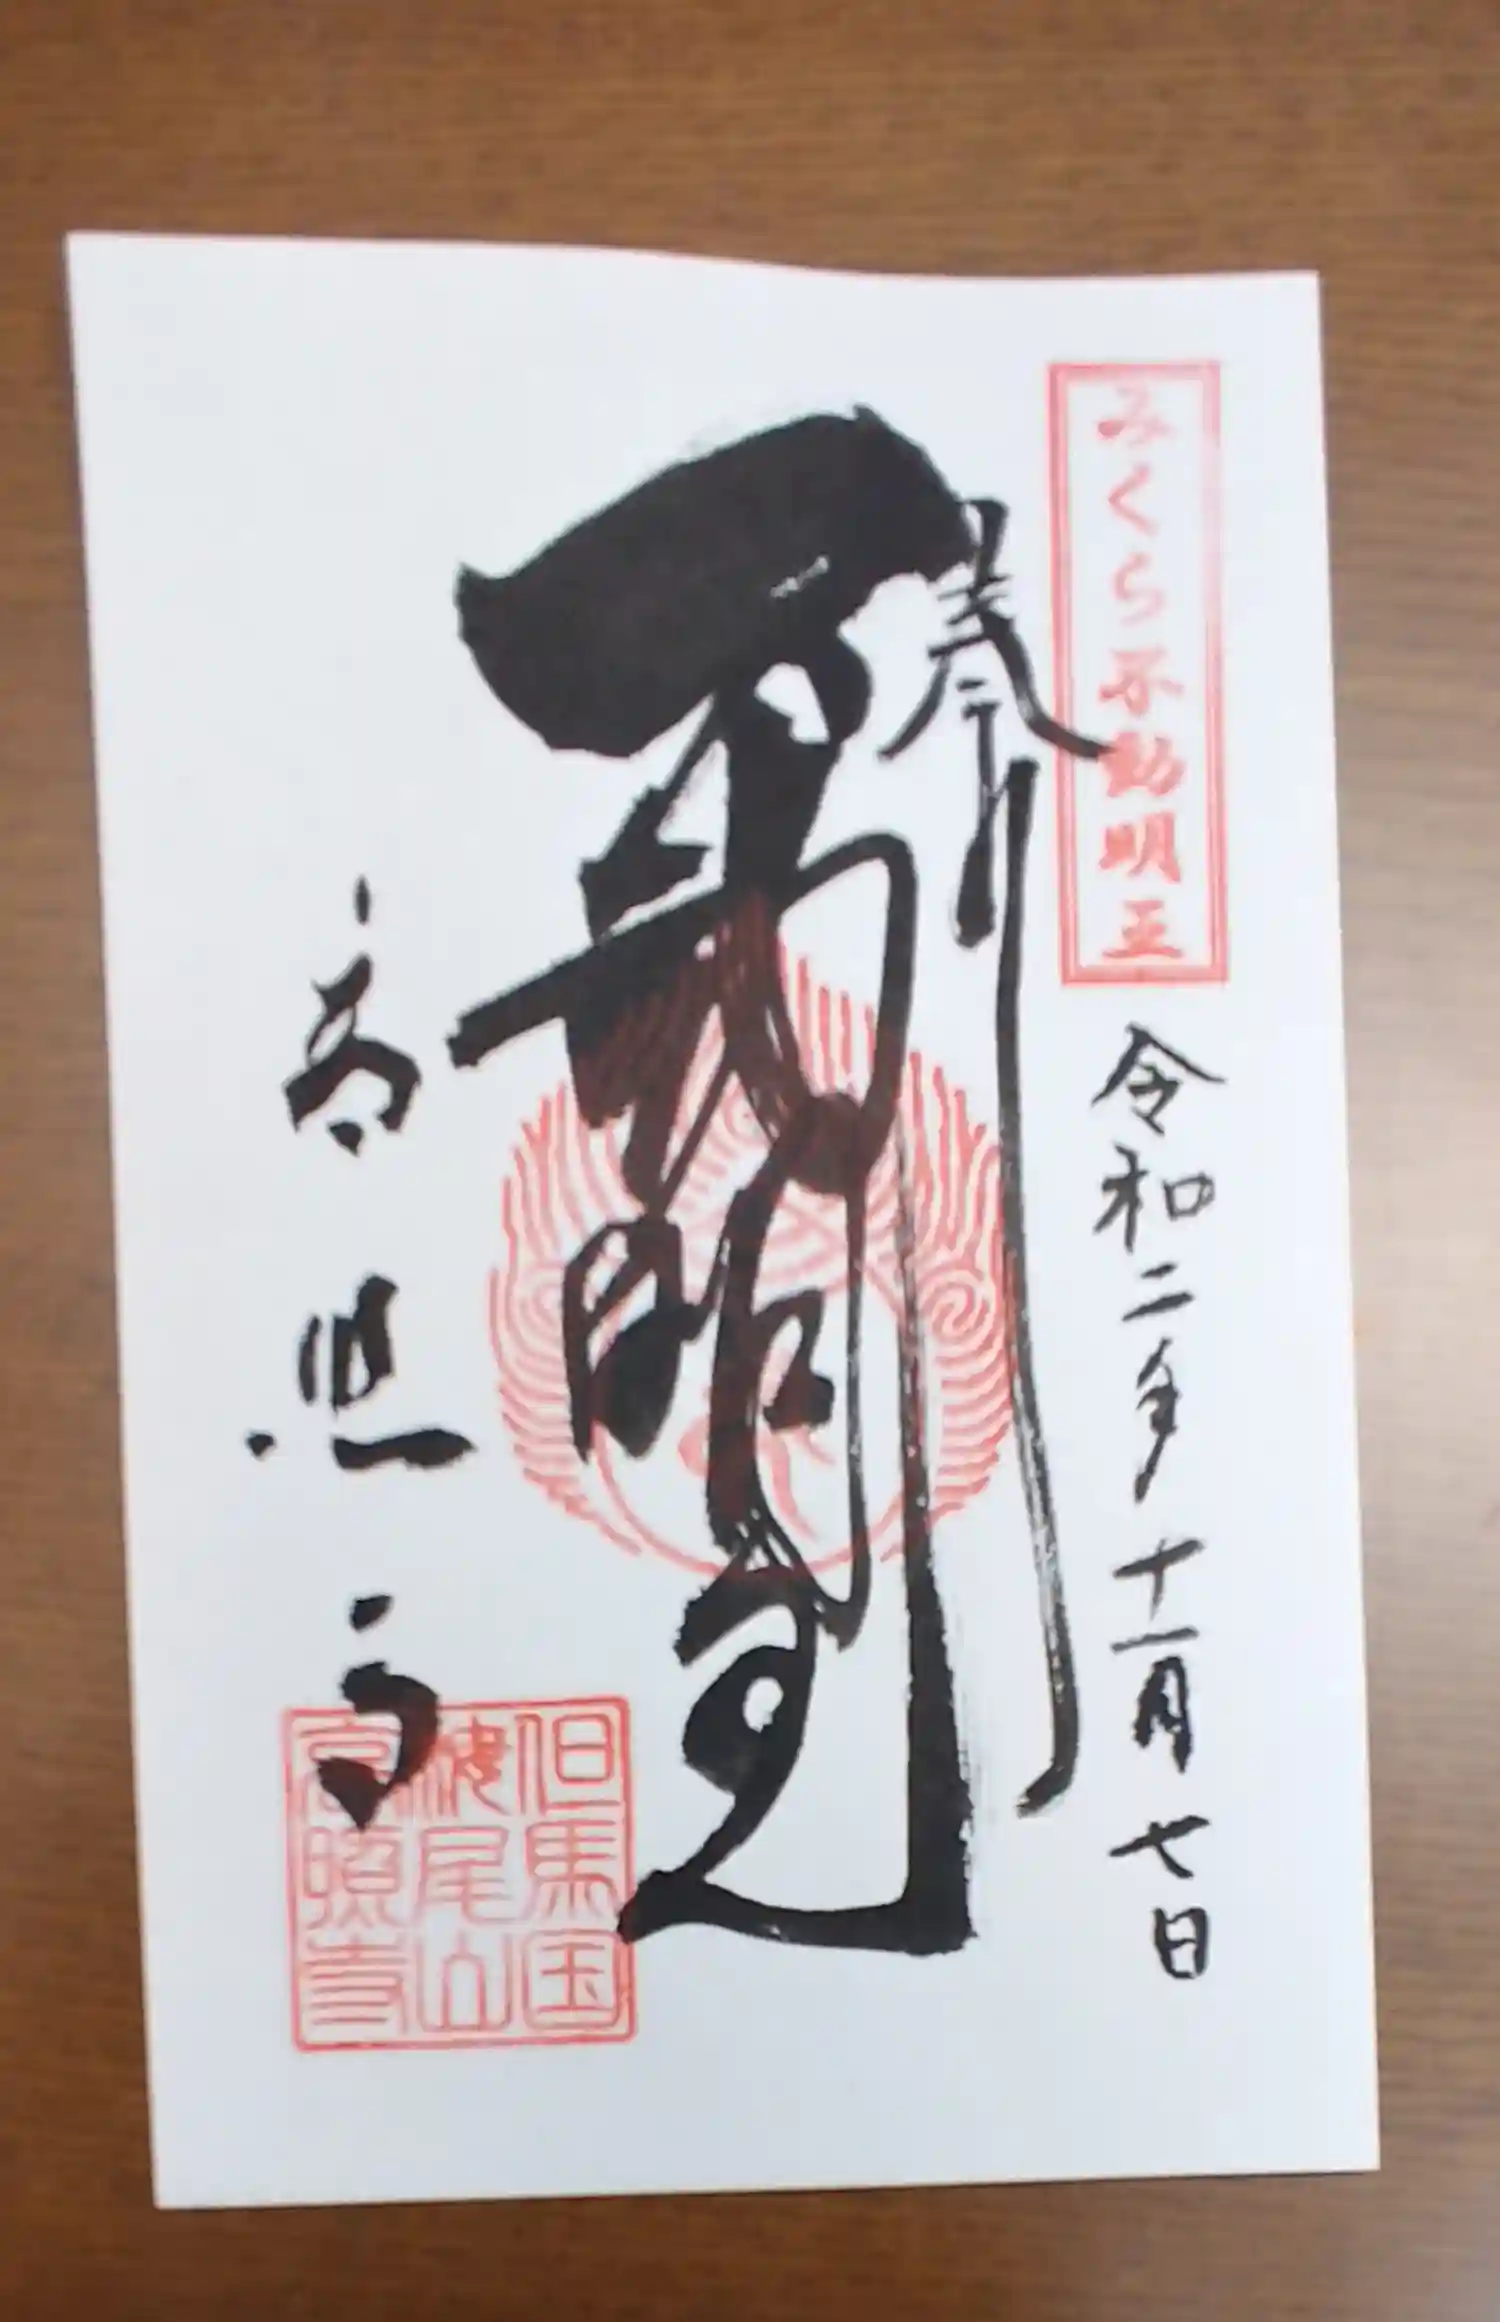 みくら不動明王
令和二年十一月七日
奉拝
不動明王
高照寺
但馬国
尾山
高照寺